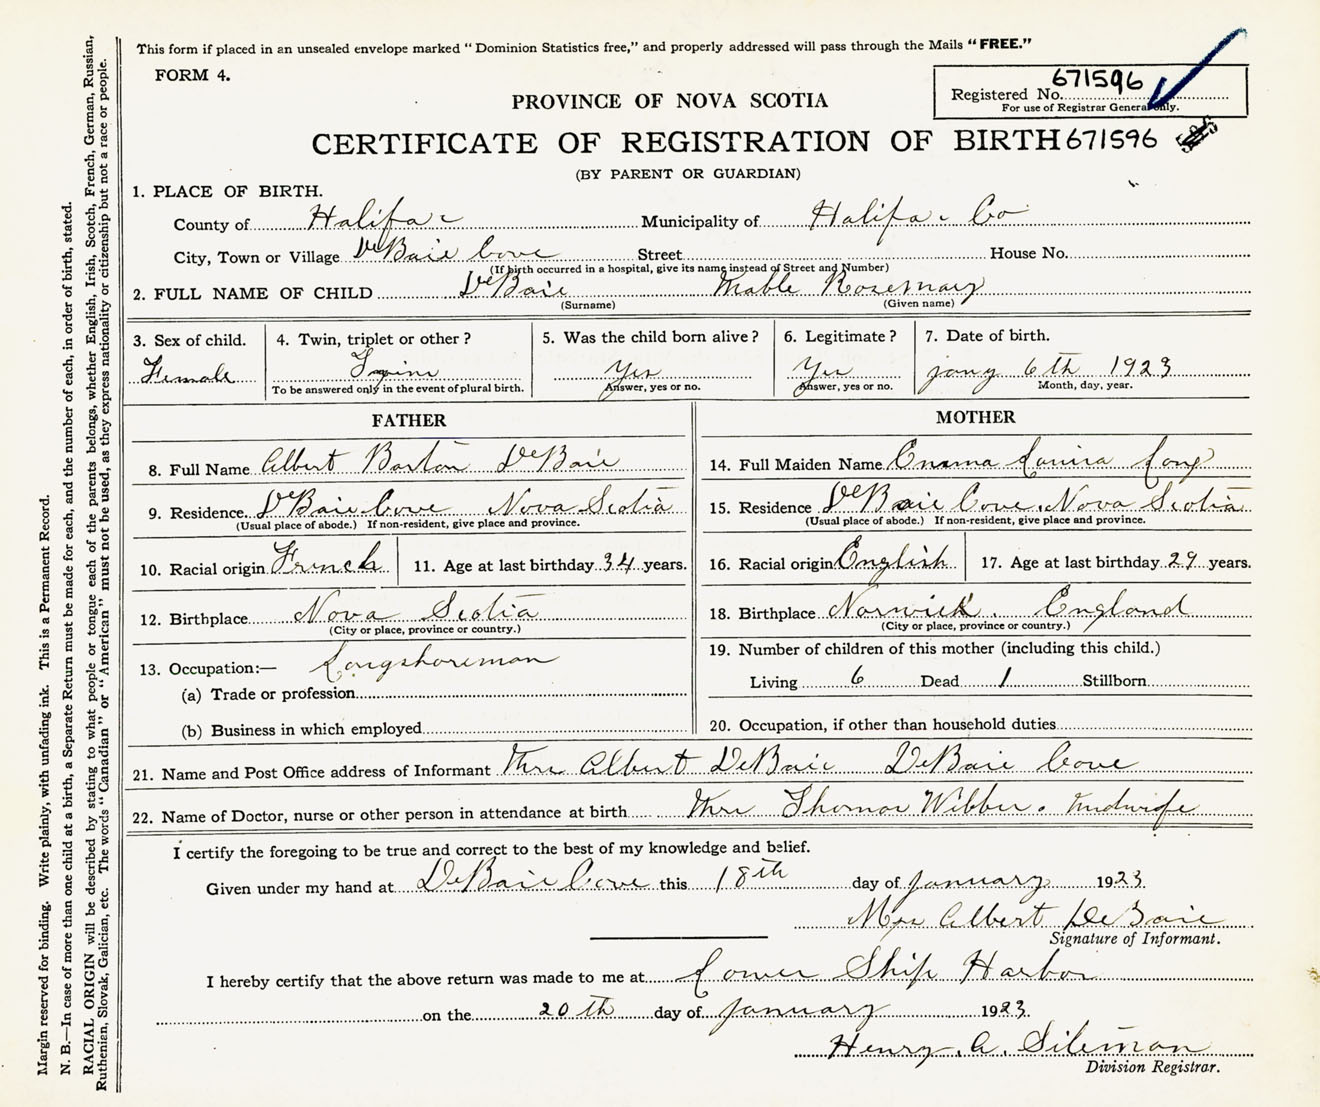 This form if placed in an unsealed envelope marked "Dominion Statistics free," and properly addressed will pass through the Mails "FREE."
FORM 4.
Registered No. 671596
For use of Registrar General only.
PROVINCE OF NOVA SCOTIA
CERTIFICATE OF REGISTRATION OF BIRTH 671596
(BY PARENT OR GUARDIAN)
1. PLACE OF BIRTH.
County of Halifax Municipality of Halifax Co
City, Town or Village DeBaie Cove Street House No.
(If birth occurred in a hospital, give its name instead of Street and Number)
2. FULL NAME OF CHILD DeBaie Mable Rosemary
(Surname) (Given name)
3. Sex of child. Female
4. Twin, triplet or other? Twin
To be answered only in the event of plural birth.
5. Was the child born alive? Yes
Answer, yes or no.
6. Legitimate? Yes
Answer, yes or no.
7. Date of birth. jany 6th 1923
Month, day, year.
FATHER
8. Full Name Albert Barton DeBaie
9. Residence. DeBaie Cove Nova Scotia
(Usual place of abode.) If non-resident, give place and province.
10. Racial origin French 11. Age at last birthday 34 years.
12. Birthplace Nova Scotia
(City or place, province or country.)
13. Occupation:— Longshoreman
(a) Trade or profession
(b) Business in which employed
MOTHER
14. Full Maiden Name Emma Louisa Long
15. Residence DeBaie Cove. Nova Scotia
(Usual place of abode.) If non-resident, give place and province.
16. Racial origin English 17. Age at last birthday 29 years.
18. Birthplace Norwich. England
(City or place, province or country.)
19. Number of children of this mother (including this child.)
Living 6 Dead 1 Stillborn
20. Occupation, if other than household duties
21. Name and Post Office address of Informant Mrs Albert DeBaie DeBaie Cove
22. Name of Doctor, nurse or other person in attendance at birth Mrs Thomas Webber. Midwife
I certify the foregoing to be true and correct to the best of my knowledge and belief.
Given under my hand at DeBaie Cove this 18th day of january 1923
Mrs Albert DeBaie
Signature of Informant.
I hereby certify that the above return was made to me at Lower Ship Harbor
on the 20th day of january 1923.
Henry. A. Siteman
Division Registrar.
Margin reserved for binding. Write plainly, with unfading ink. This is a Permanent Record.
N. B.—In case of more than one child at a birth, a Separate Return must be made for each, and the number of each, in order of birth, stated.
RACIAL ORIGIN will be described by stating to what people or tongue each of the parents belongs, whether English, Irish, Scotch, French, German, Russian,
Ruthenian, Slovak, Galician, etc. The words "Canadian" or "American" must not be used, as they express nationality or citizenship but not a race or people.